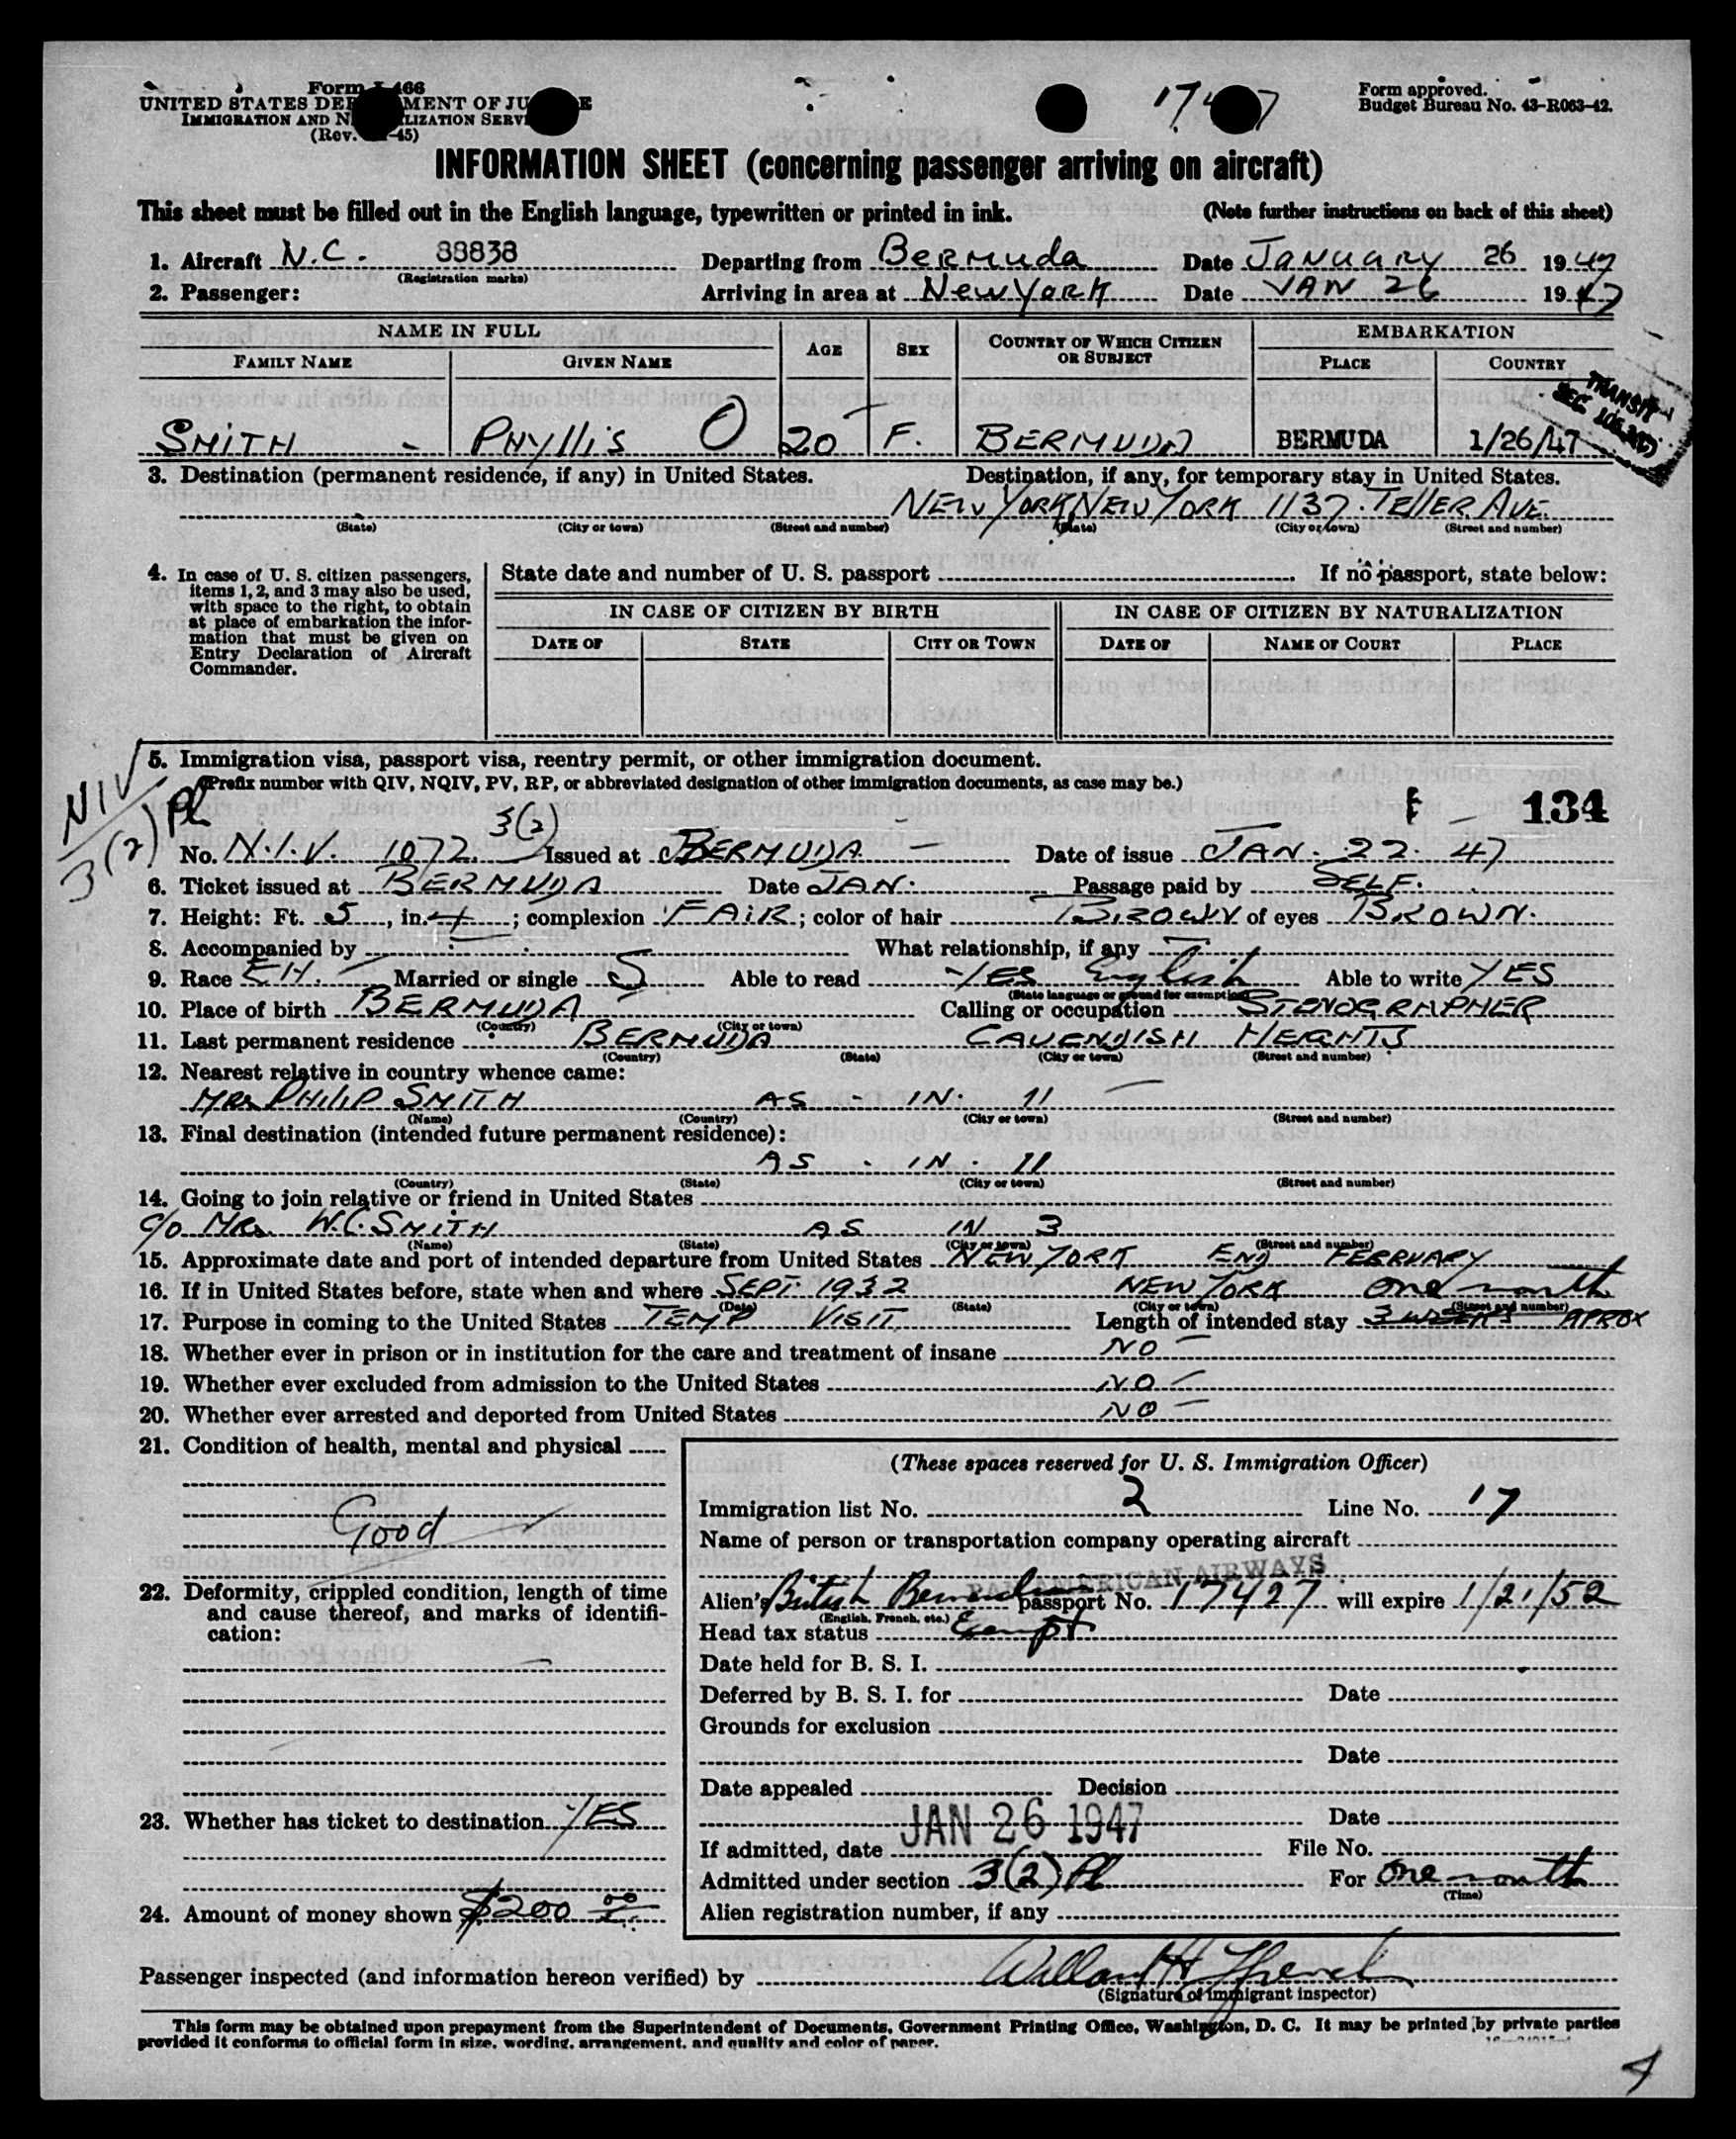 Form I-466
UNITED STATES DEPARTMENT OF JUSTICE
IMMIGRATION AND NATURALIZATION SERVICE
(Rev. -45)
Form approved.
Budget Bureau No. 43-R063-42.
INFORMATION SHEET (concerning passenger arriving on aircraft)
This sheet must be filled out in the English language, typewritten or printed in ink. (Note further instructions on back of this sheet)
1. Aircraft N.C. 88838 Departing from Bermuda Date January 26 1947
(Registration marks)
2. Passenger: Arriving in area at New York Date JAN 26 1947
NAME IN FULL AGE SEX COUNTRY OF WHICH CITIZEN OR SUBJECT EMBARKATION
FAMILY NAME GIVEN NAME PLACE COUNTRY
TRANSIT
SEC.
SMITH - PHYLLIS O 20 F. BERMUDA BERMUDA 1/26/47
3. Destination (permanent residence, if any) in United States. Destination, if any, for temporary stay in United States.
NEW YORK NEW YORK 1137 TELLER AVE.
(State) (City or town) (Street and number) (State) (City or town) (Street and number)
4. In case of U. S. citizen passengers, items 1, 2, and 3 may also be used, with space to the right, to obtain at place of embarkation the information that must be given on Entry Declaration of Aircraft Commander.
State date and number of U. S. passport If no passport, state below:
IN CASE OF CITIZEN BY BIRTH IN CASE OF CITIZEN BY NATURALIZATION
DATE OF STATE CITY OR TOWN DATE OF NAME OF COURT PLACE
NIV
3(2) Pl
5. Immigration visa, passport visa, reentry permit, or other immigration document.
(Prefix number with QIV, NQIV, PV, RP, or abbreviated designation of other immigration documents, as case may be.)
134
3(2)
No. N.I.V. 1072 Issued at BERMUDA - Date of issue JAN. 22. 47
6. Ticket issued at BERMUDA Date JAN. Passage paid by SELF.
7. Height: Ft. 5, in. 4; complexion FAIR; color of hair BROWN of eyes BROWN.
8. Accompanied by What relationship, if any
9. Race Married or single S Able to read YES English Able to write YES
(State language or ground for exemption)
10. Place of birth BERMUDA Calling or occupation STENOGRAPHER
(Country) (City or town)
11. Last permanent residence BERMUDA CAVENDISH HEIGHTS
(Country) (State) (City or town) (Street and number)
12. Nearest relative in country whence came:
MRS PHILIP SMITH AS - IN. 11
(Name) (Country) (City or town) (Street and number)
13. Final destination (intended future permanent residence):
AS - IN - 11
(Country) (State) (City or town) (Street and number)
14. Going to join relative or friend in United States
c/o MRS. W.C. SMITH AS IN 3
(Name) (State) (City or town) (Street and number)
15. Approximate date and port of intended departure from United States NEW YORK END FEBRUARY
16. If in United States before, state when and where SEPT. 1932 NEW YORK one month
(Date) (State) (City or town) (Street and number)
17. Purpose in coming to the United States TEMP VISIT Length of intended stay 3 WEEKS APROX
18. Whether ever in prison or in institution for the care and treatment of insane NO
19. Whether ever excluded from admission to the United States NO
20. Whether ever arrested and deported from United States NO
21. Condition of health, mental and physical
Good
22. Deformity, crippled condition, length of time and cause thereof, and marks of identification:
23. Whether has ticket to destination YES
24. Amount of money shown $200 00
(These spaces reserved for U. S. Immigration Officer)
Immigration list No. 2 Line No. 17
Name of person or transportation company operating aircraft
PAN AMERICAN AIRWAYS
Alien's British Bermudian passport No. 17427 will expire 1/21/52
(English, French, etc.)
Head tax status Exempt
Date held for B. S. I.
Deferred by B. S. I. for Date
Grounds for exclusion
Date
Date appealed Decision
Date
If admitted, date JAN 26 1947 File No.
Admitted under section 3(2) Pl For one month
(Time)
Alien registration number, if any
Passenger inspected (and information hereon verified) by
(Signature of immigrant inspector)
This form may be obtained upon prepayment from the Superintendent of Documents, Government Printing Office, Washington, D. C. It may be printed by private parties
provided it conforms to official form in size, wording, arrangement, and quality and color of paper.